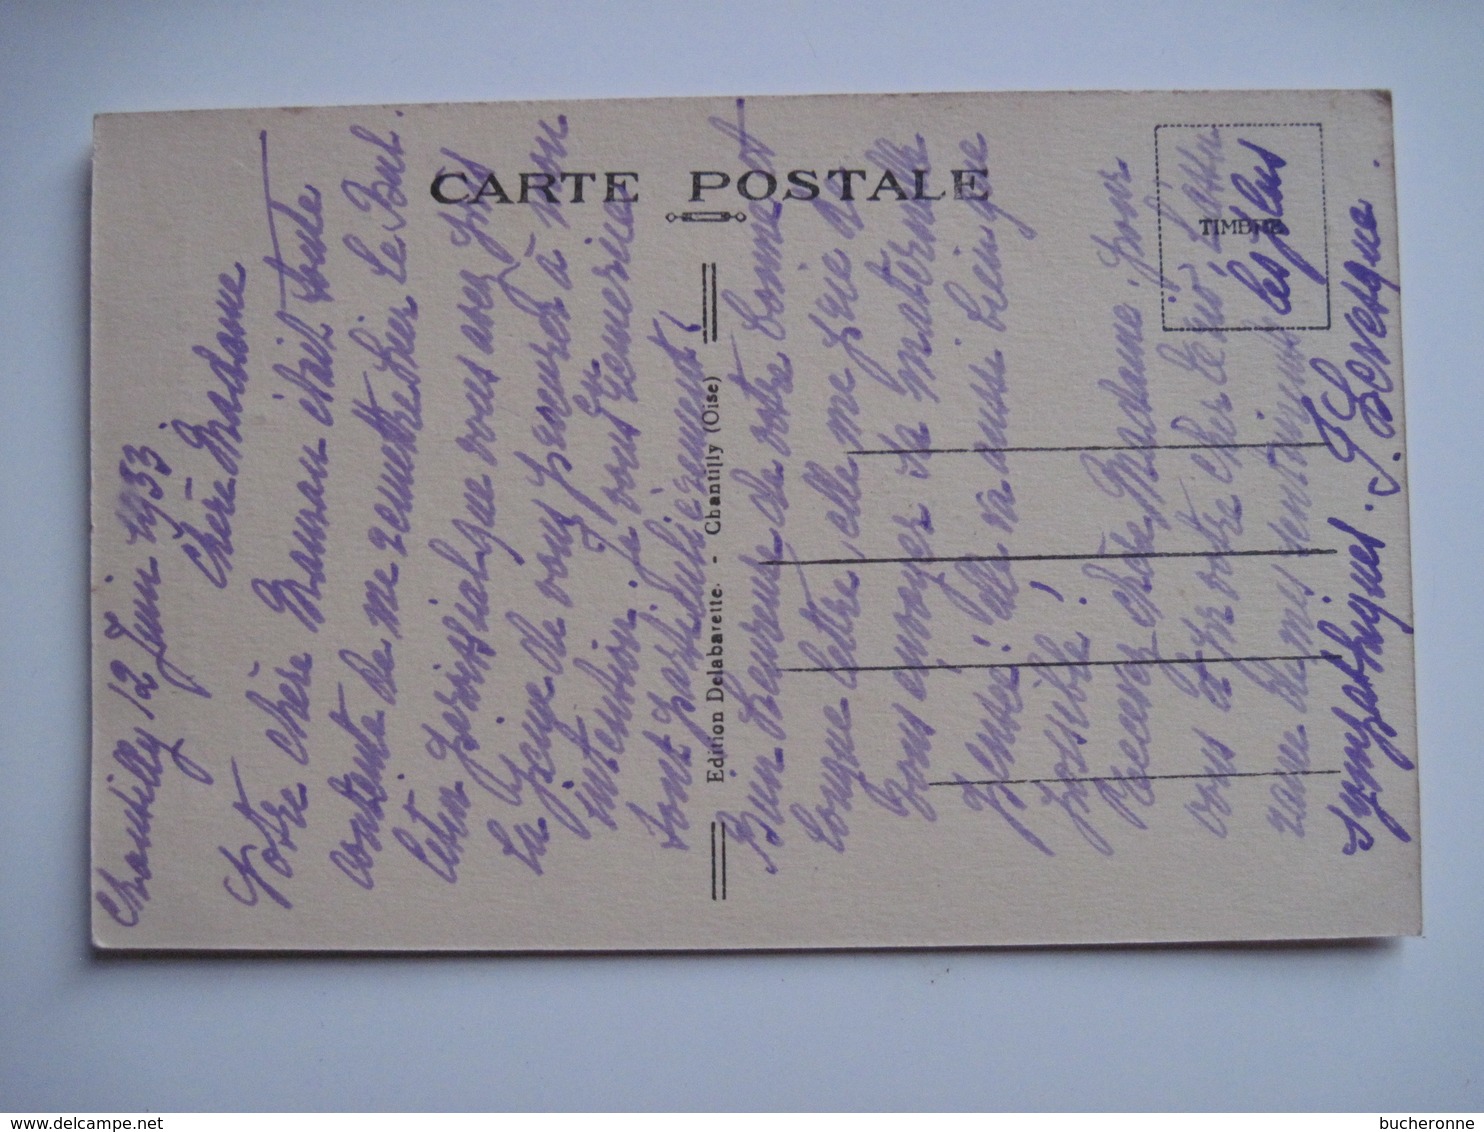 CARTE POSTALE
TIMBRE
Edition Delabarette. - Chantilly (Oise)
Chantilly 12 Juin 1933
Chère Madame
Votre chère Maman était toute
contente de me remettre hier le Bul.
letin paroissial que vous avez pris
la peine de vous procurer à mon
intention. Je vous remercie
tout particulièrement.
Bien heureuse de votre bonne et
longue lettre, elle me prie de
vous envoyer sa maternelle
pensée! Elle va aussi bien que
possible!
Recevez chère Madame, pour
vous et votre cher
mes sentiments
les plus
sympathiques. J. Levesque.
bucheronne